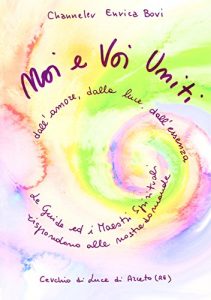 Channeler Enrica Bovi
Noi e Voi Uniti
dall'amore, dalla luce, dall'essenza
Le Guide ed i Maestri Spirituali
rispondono alle nostre domande
Cerchio di Luce di Arceto (RE)